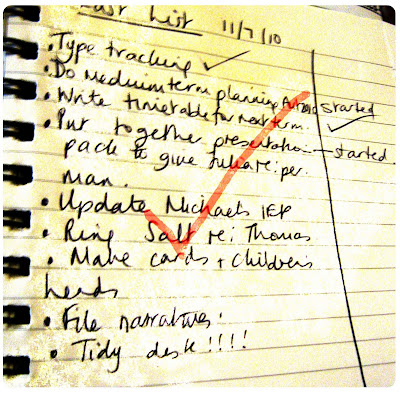 Last List 11/7/10
• Type tracking ✓
• Do medium term planning started
• Write timetable for next term. ✓
• Put together presentation — started
pack to give re: per.
man.
• Update Michaels IEP
• Ring Salt re: Thomas
• Make cards + Childrens
heads
• File narratives.
• Tidy desk!!!!